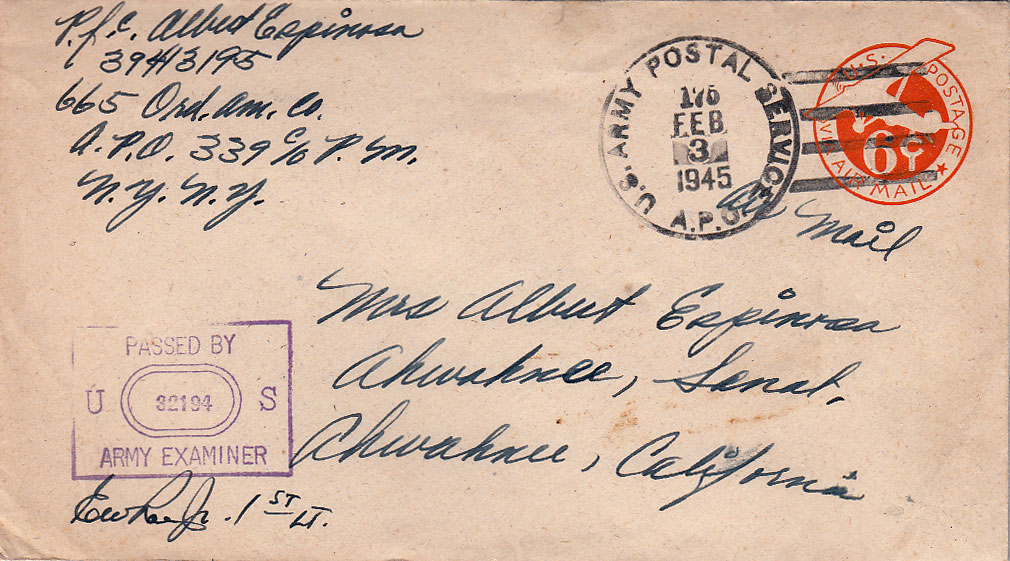 P.f.c. Albert Espinosa
39413195
665 Ord. Am. Co.
A.P.O. 339 c/o P.M.
N.Y. N.Y.
U.S. ARMY POSTAL SERVICE
A.P.O.
175
FEB
3
1945
U.S. POSTAGE
6¢
VIA AIR MAIL
Air Mail
Mrs Albert Espinosa
Ahwahnee, Sanat.
Ahwahnee, California
PASSED BY
U 32194 S
ARMY EXAMINER
1ST LT.